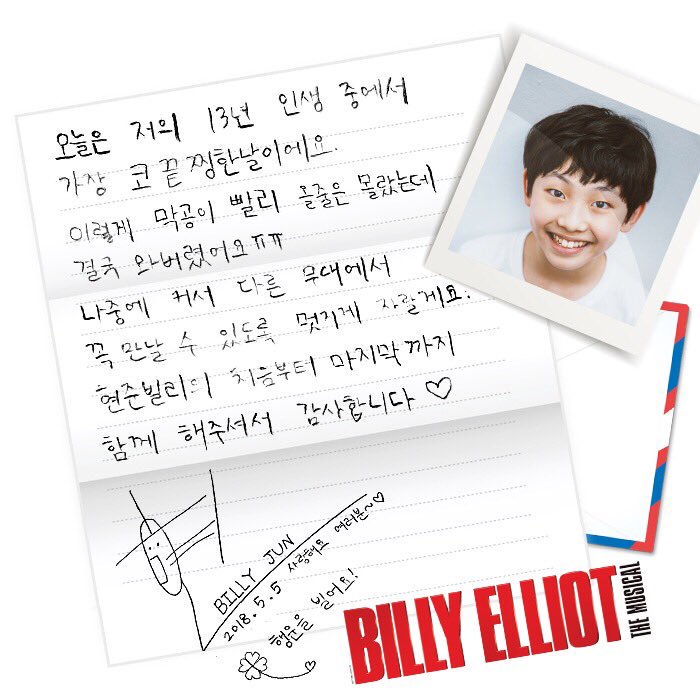 오늘은 저의 13년 인생 중에서
가장 코 끝 찡한날이에요.
이렇게 막공이 빨리 올줄은 몰랐는데
결국 와버렸어요ㅠㅠ
나중에 커서 다른 무대에서
꼭 만날 수 있도록 멋지게 자랄게요!
현준빌리의 처음부터 마지막까지
함께 해주셔서 감사합니다♡
BILLY JUN
2018.5.5 사랑해요 여러분~♡
행운을 빌어요!
BILLY ELLIOT
THE MUSICAL